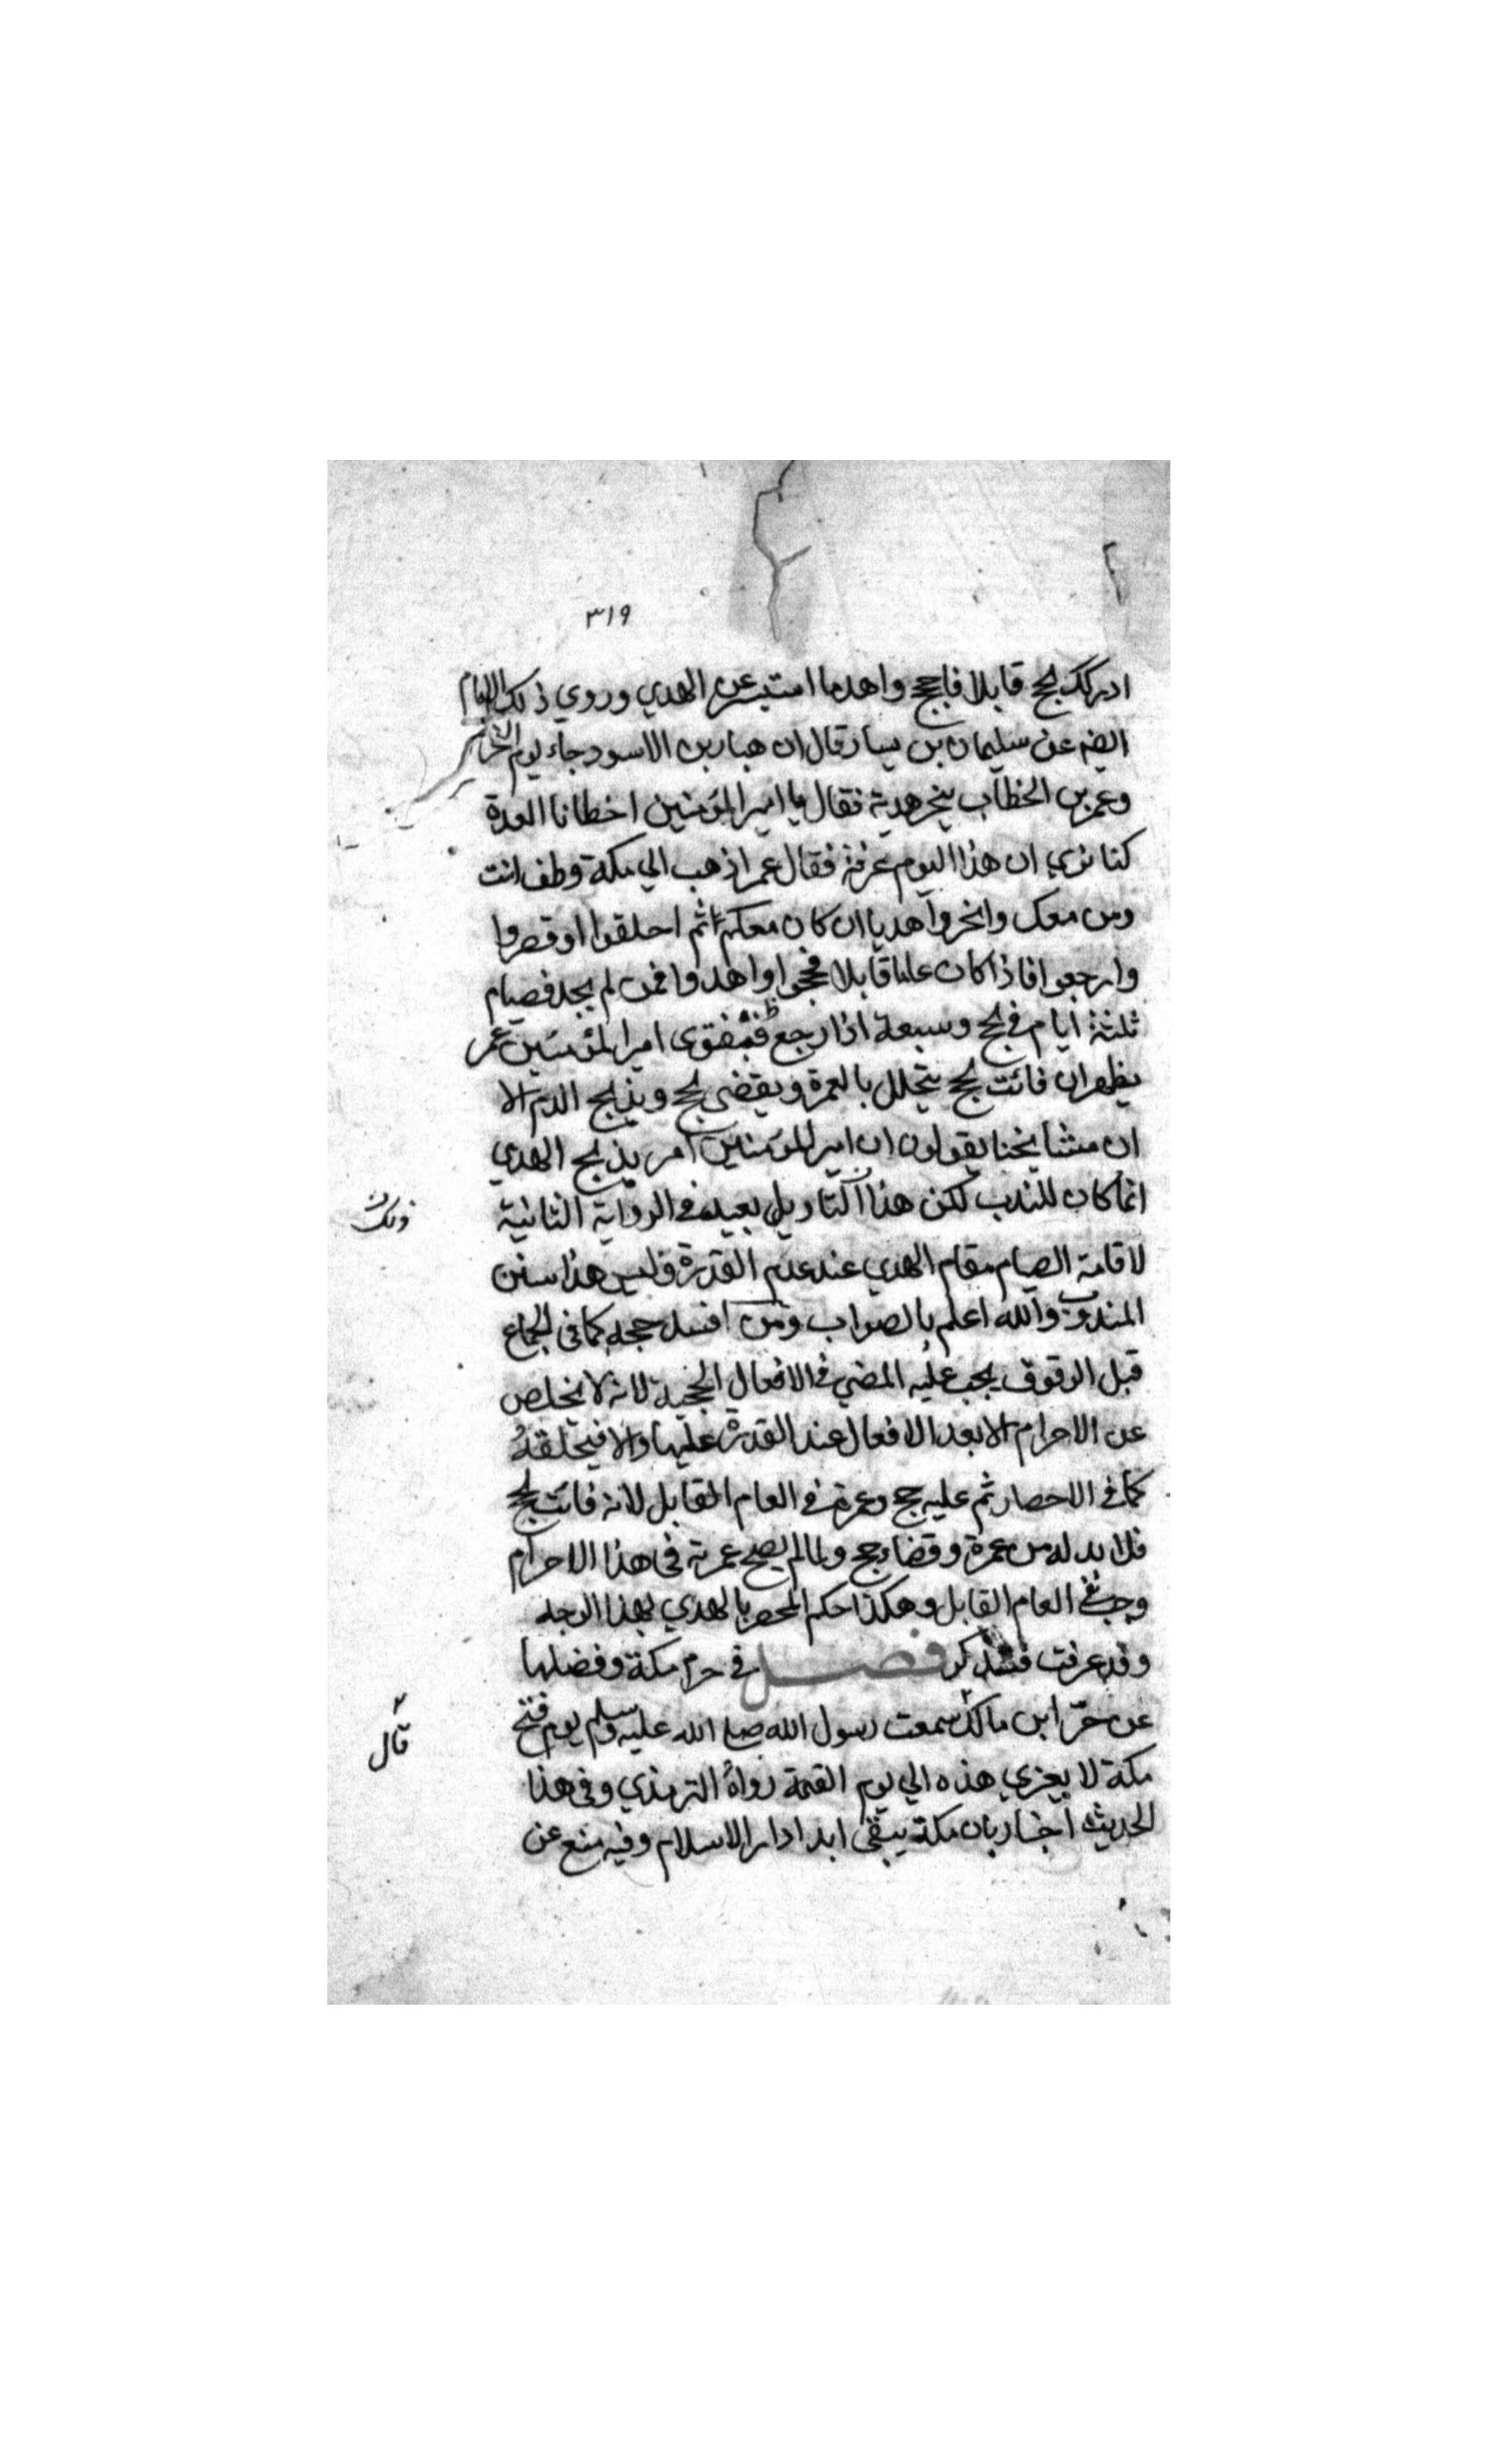 ٣١٩
ادركك الحج قابلا فاحجج واهد ما استيسر عن الهدي وروي ذلك الامام
ايضا عن سليمان بن يسار قال ان هبار بن الاسود جاء يوم النحر
وعمر بن الخطاب ينحر هديه فقال يا امير المؤمنين اخطانا العدة
كنا نرى ان هذا اليوم عرفة فقال عمر اذهب الي مكة وطف انت
ومن معك وانحروا هديا ان كان معكم ثم احلقوا او قصروا
وارجعوا فاذا كان عاما قابلا فحجوا واهدوا فمن لم يجد فصيام
ثلثة ايام في الحج وسبعة اذا رجع فبفتوى امير المؤمنين عمر
يظهر ان فائت الحج يتحلل بالعمرة ويقضى الحج ويذبح الدم الا
ان مشايخنا يقولون ان امير المؤمنين امر بذبح الهدي
انما كان للندب لكن هذا التاويل بعيد في الرواية الثانية
وذلك
لاقامة الصيام مقام الهدي عند عدم القدرة وليس هذا سنن
المندوب والله اعلم بالصواب ومن افسد حجه كما في الجماع
قبل الوقوف يجب عليه المضي في الافعال الحجية لانه لا يخلص
عن الاحرام الا بعد الافعال عند القدرة عليها والا
كما في الاحصار ثم عليه حج وعمرة في العام القابل لانه فائت الحج
فلا بد له من عمرة وقضاء حج ولما لم يصح عمرته في هذا الاحرام
وجب في العام القابل وهكذا حكم المحصر بالهدي بهذا الوجه
وقد عرفت فتذكر فصل في حرم مكة وفضلها
عن ابن مالك سمعت رسول الله صلى الله عليه وسلم يوم فتح
قال
مكة لا يغزي هذه الي يوم القيمة رواه الترمذي وفي هذا
الحديث اخبار بان مكة يبقى ابدا دار الاسلام وفيه منع عن